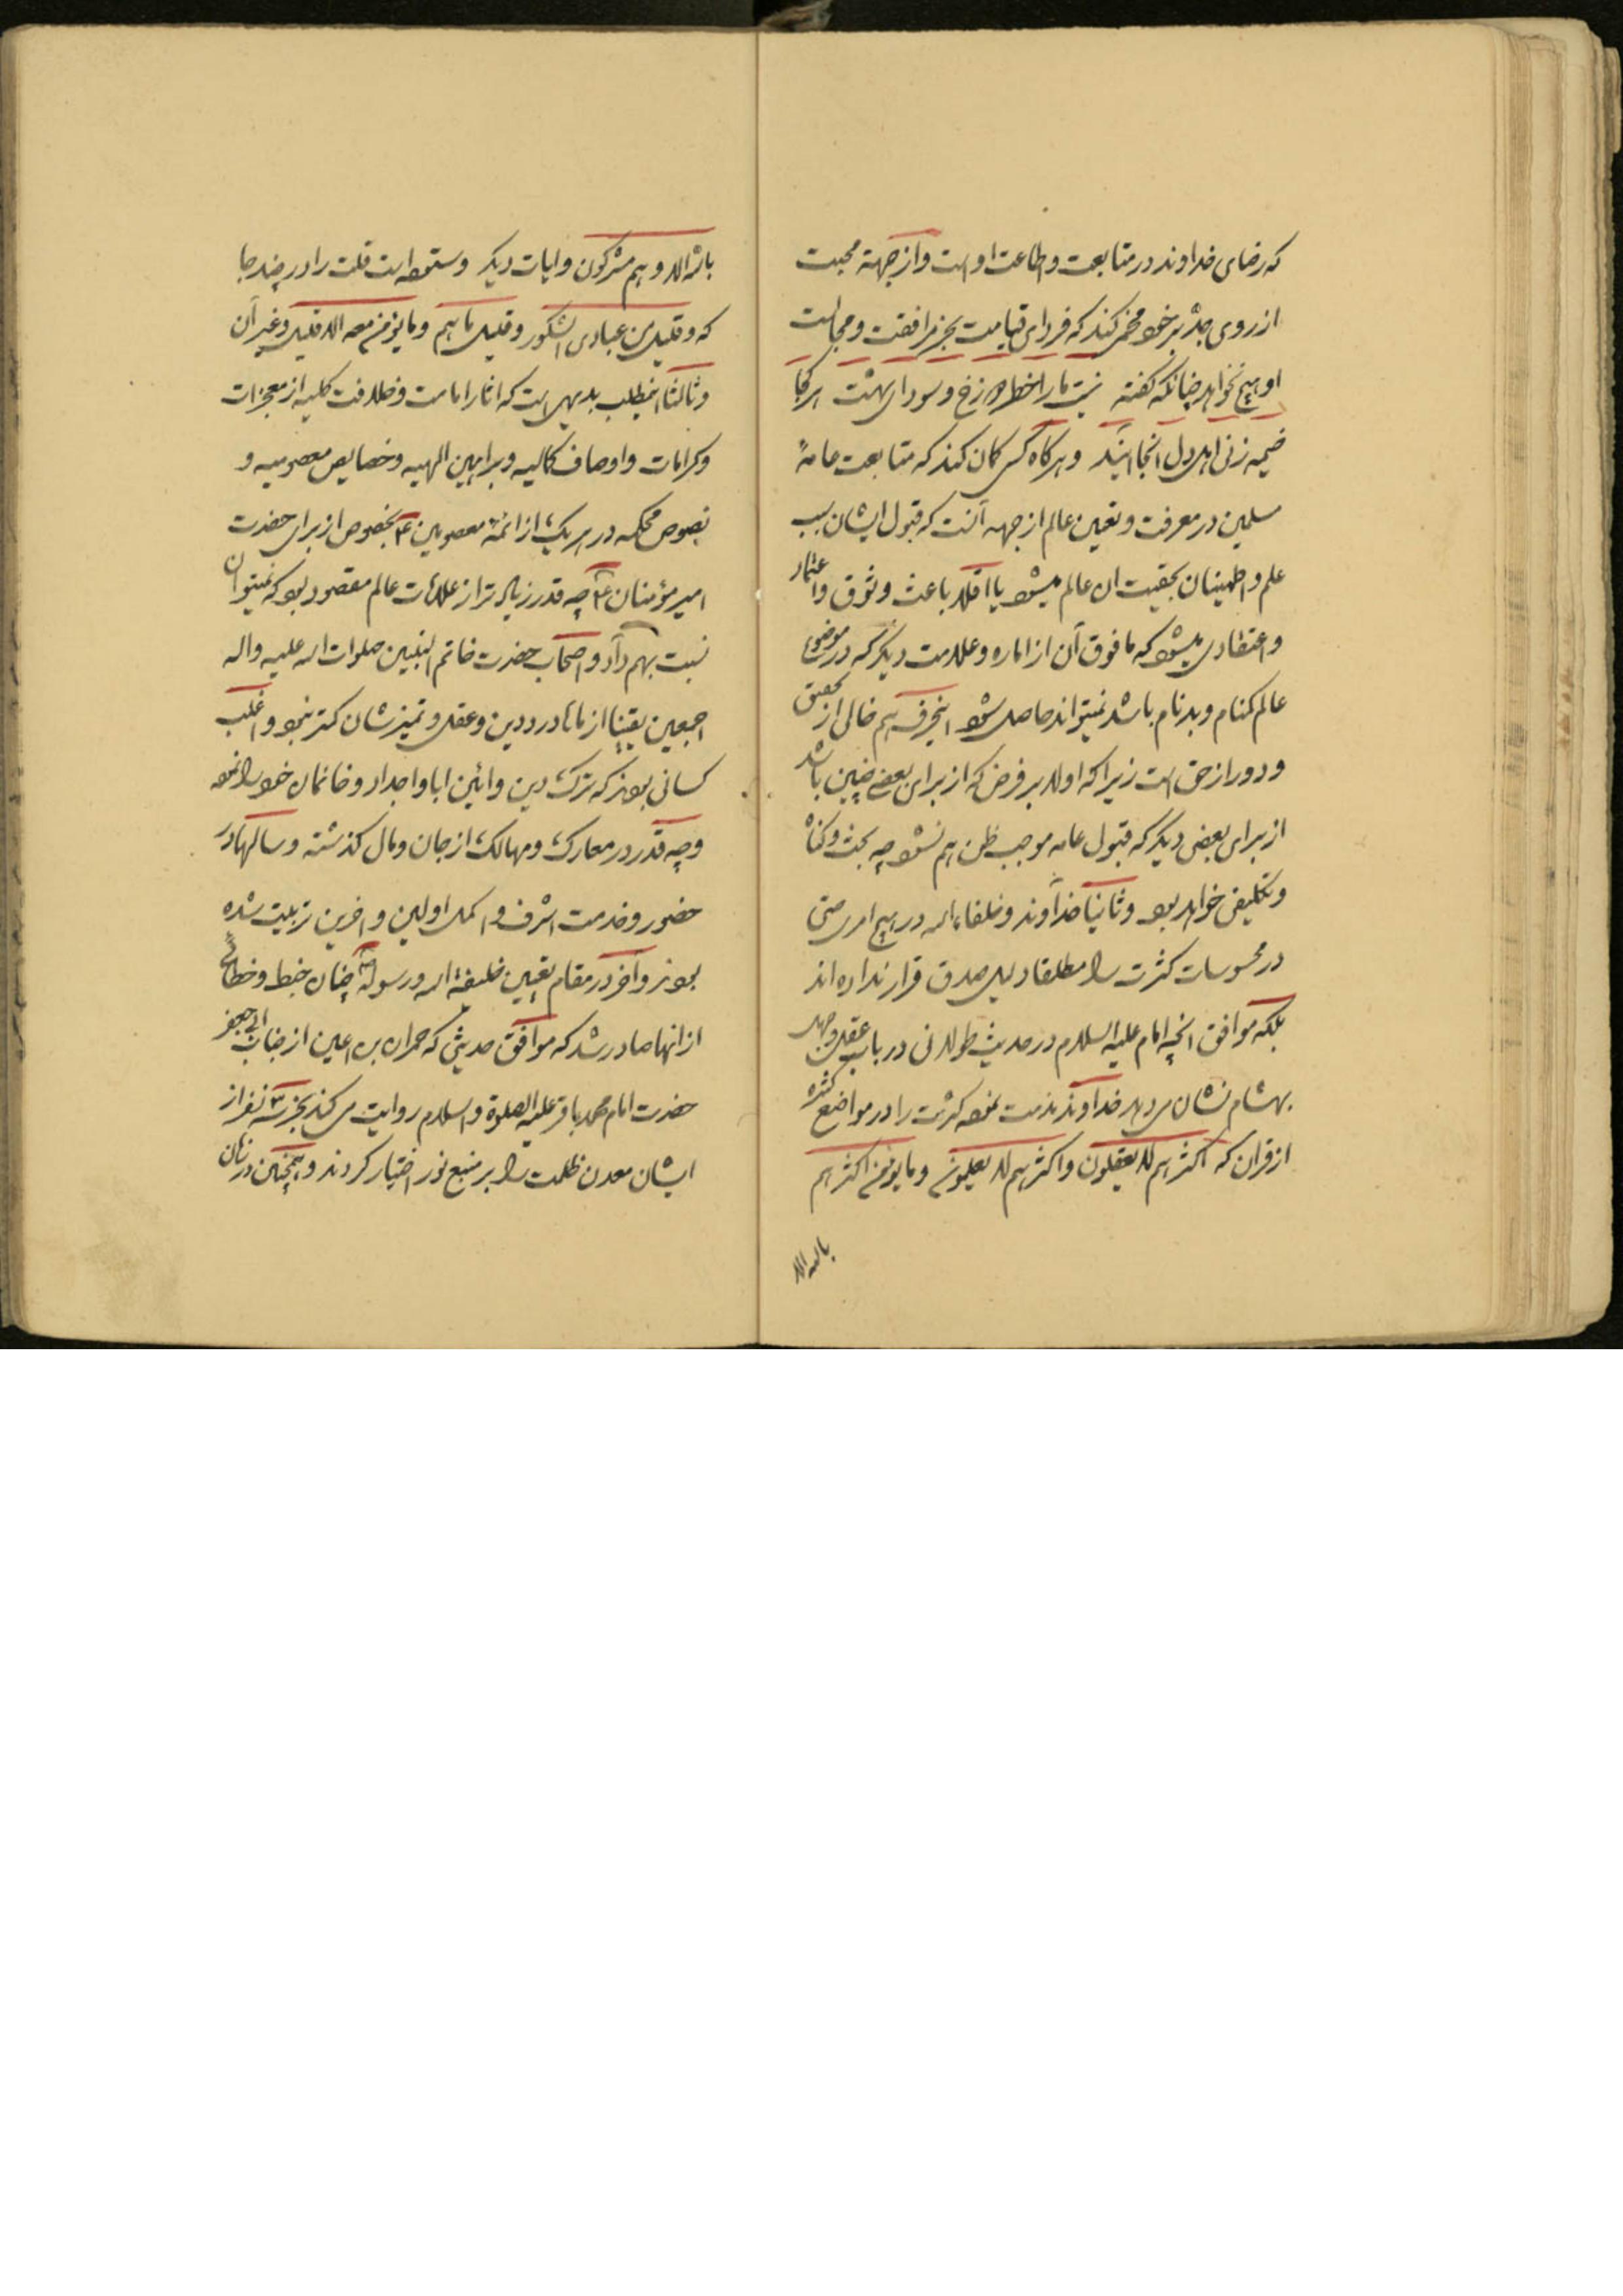 که رضای خداوند در متابعت و اطاعت اوست و از جهة محبت
از روی جد بر خود مخمر کند که فردای قیامت بجز مرافقت و مجالست
او هیچ نخواهد چنانکه گفته نیست ما را خطر دوزخ و سودای بهشت هر کجا
خیمه زنی اهل دل انجا ایند و هرگاه کسی کمان کند که متابعت عامهٔ
مسلمین در معرفت و تعیین عالم از جهه آنست که قبول ایشان سبب
علم و اطمینان بحقیت ان عالم میشود یا اقلا باعث وثوق و اعتماد
و اعتقادی میشود که مافوق آن از اماره و علامت دیگر که در موضوع
عالم کمنام و بدنام باشد نمیتواند حاصل شود اینحرف هم خالی از تحقیق
و دور از حق است زیرا که اولا بر فرض که از برای بعضی چنین باشد
از برای بعضی دیگر که قبول عامه موجب ظن هم نشود چه بحث و کناه
و تکلیفی خواهد بود و ثانیا خداوند و خلفاء الله در هیچ امری حتی
در محسوسات کثرت را مطلقا دلیل صدق قرار نداده اند
بلکه موافق انچه امام علیه السلام در حدیث طولانی در باب عقل و جهل
بهشام نشان میدهد خداوند مذمت نموده کثرت را در مواضع کثیره
از قران که اکثرهم لا یعقلون و اکثرهم لا یعلمون و ما یؤمن اکثرهم
بالله الا
بالله الا و هم مشرکون و ایات دیگر و ستوده است قلت را در چند جا
که و قلیل من عبادی الشکور و قلیل ما هم و ما یؤمن معه الا قلیل و غیر آن
و ثالثا اینمطلب بدیهی است که اثار امامت و خلافت کلیه از معجزات
و کرامات و اوصاف کمالیه و براهین الهیه و خصایص معصومیه و
نصوص محکمه در هر یک از ائمهٔ معصومین ع بخصوص از برای حضرت
امیر مؤمنان ع چه قدر زیاده تر از علامات عالم مقصود بود که نمیتوان
نسبت بهم داد و اصحاب حضرت خاتم النبیین صلوات الله علیه و اله
اجمعین یقینا از ماها در درد دین و عقل و تمیز شان کمتر نبود و اغلب
کسانی بودند که ترک دین و ائین ابا و اجداد و خانمان خود را نموده
و چه قدر در معارک و مهالک از جان و مال گذشته و سالها در
حضور و خدمت اشرف و اکمل اولین و اخرین تربیت شده
بودند و آخر در مقام تعیین خلیفهٔ الله و رسوله ص چنان خبط و خطائی
از انها صادر شد که موافق حدیثی که حمران بن اعین از جناب ابی جعفر
حضرت امام محمد باقر علیه الصلوة و السلام روایت می کند بجز سه نفر از
ایشان معدن ظلمت را بر منبع نور اختیار کردند و همچنین در زمان